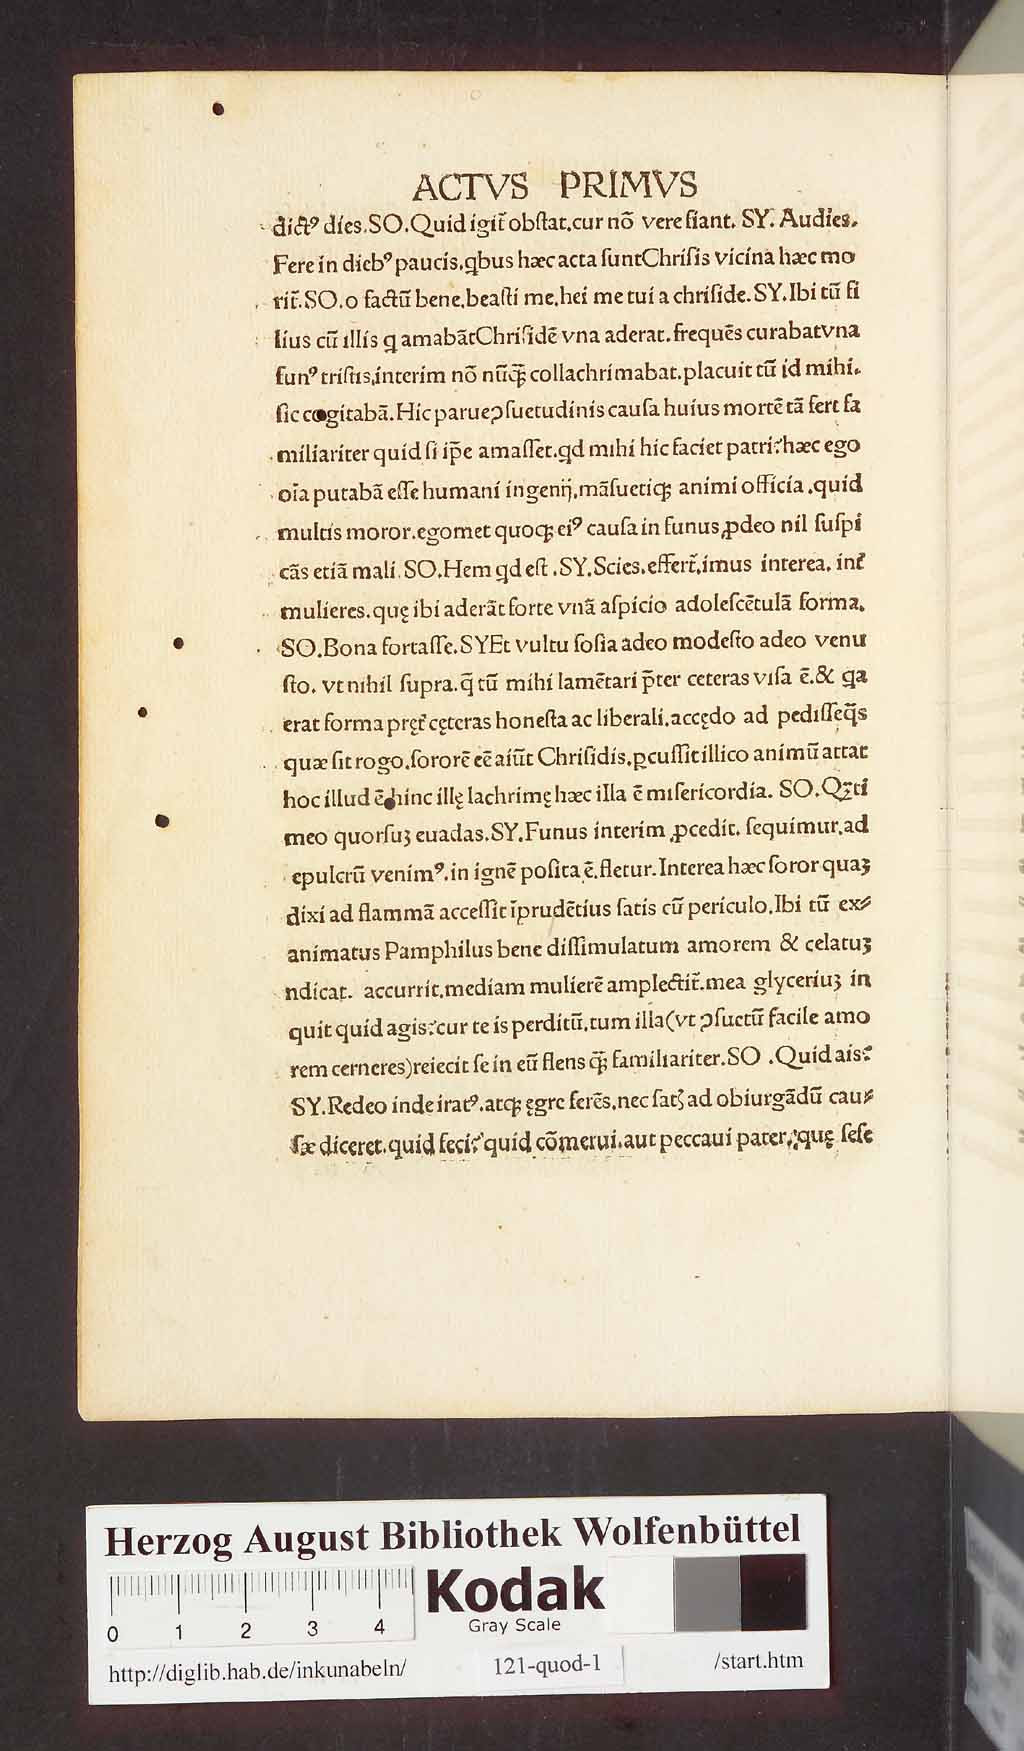 ACTVS PRIMVS
dictꝰ dies.SO.Quid igit̃ obstat.cur nõ vere fiant. SY. Audies.
Fere in diebꝰ paucis.q̃bus hæc acta suntChrisis vicina hæc mo
rit̃.SO.o factũ bene.beasti me.hei metui a chriside.SY.Ibi tũ fi
lius cũ illis q amabãtChrisidẽ vna aderat.frequẽs curabatvna
funꝰ tristis.interim nõ nũꝙ̃ collachrimabat.placuit tũ id mihi.
sic cogitabã.Hic parue ꝯsuetudinis causa huius mortẽ tã fert fa
miliariter quid si ip̃e amasset.qd mihi hic faciet patri?hæc ego
oĩa putabã esse humani ingenij.mãsuetiq; animi officia.quid
multis moror.egomet quoq; eiꝰ causa in funus ꝓdeo nil suspi
cãs etiã mali. SO.Hem qd est .SY.Scies.effert̃.imus interea. int̃
mulieres.quę ibi aderãt forte vnã aspicio adolescẽtulã forma.
SO.Bona fortasse.SYEt vultu sosia adeo modesto adeo venu
sto. vt nihil supra.q̃ tũ mihi lamẽtari p̃ter ceteras visa ẽ.& qa
erat forma pręt̃ cęteras honesta ac liberali.accędo ad pedisseq̃s
quæ sit rogo.sororẽ eẽ aiũt Chrisidis.ꝑcussit illico animũ attat
hoc illud ẽ hinc illę lachrimę hæc illa ẽ misericordia. SO.Qꝫ ti
meo quorsuꝫ euadas.SY.Funus interim ꝓcedit. sequimur.ad
epulcrũ venimꝰ.in ignẽ posita ẽ.fletur.Interea hæc soror quaꝫ
dixi ad flammã accessit ĩprudẽtius satis cũ periculo.Ibi tũ ex⸗
animatus Pamphilus bene dissimulatum amorem & celatuꝫ
ndicat. accurrit.mediam mulierẽ amplectit̃.mea glyceriuꝫ in
quit quid agis?cur te is perditũ.tum illa(vt ꝯsuetũ facile amo
rem cerneres)reiecit se in eũ flens ꝙ̃ familiariter.SO .Quid ais?
SY.Redeo inde iratꝰ.atq; ęgre ferẽs.nec satꝭ ad obiurgãdũ cau⸗
sæ diceret.quid feci?quid cõmerui.aut peccaui pater?quę sese
Herzog August Bibliothek Wolfenbüttel
Kodak
Gray Scale
0 1 2 3 4
http://diglib.hab.de/inkunabeln/ 121-quod-1 /start.htm